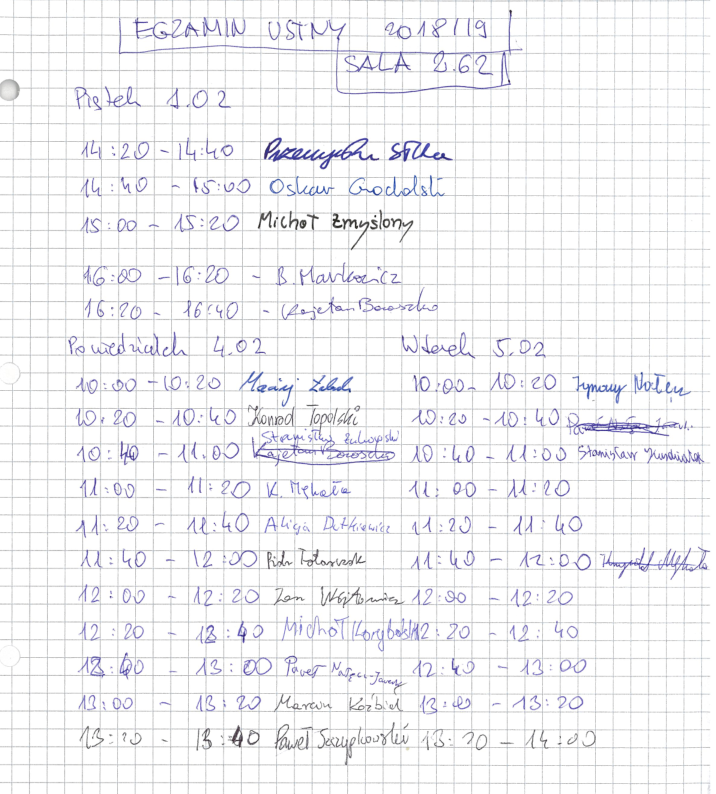 EGZAMIN USTNY 2018/19
SALA 2.62
Piątek 1.02
14:20 - 14:40
14:40 - 15:00 Oskar Grodolski
15:00 - 15:20 Michał Zmyślony
16:00 - 16:20 - B. Markowicz
16:20 - 16:40 - Kajetan Boroszko
Poniedziałek 4.02
10:00 - 10:20 Maciej
10:20 - 10:40 Konrad Topolski
Stanisław Żukowski
10:40 - 11.00 Kajetan Boroszko
11:00 - 11:20 K. Mękała
11:20 - 11:40 Alicja Dutkiewicz
11:40 - 12:00 Piotr
12:00 - 12:20 Jan Wójtowicz
12:20 - 12:40 Michał Korybski
12:40 - 13:00 Paweł
13:00 - 13:20 Marcin Koźbiał
13:20 - 13:40 Paweł Szczypkowski
Wtorek 5.02
10:00 - 10:20
10:20 - 10:40
10:40 - 11:00 Stanisław
11:00 - 11:20
11:20 - 11:40
11:40 - 12:00 Krzysztof Mękała
12:00 - 12:20
12:20 - 12:40
12:40 - 13:00
13:00 - 13:20
13:20 - 14:00